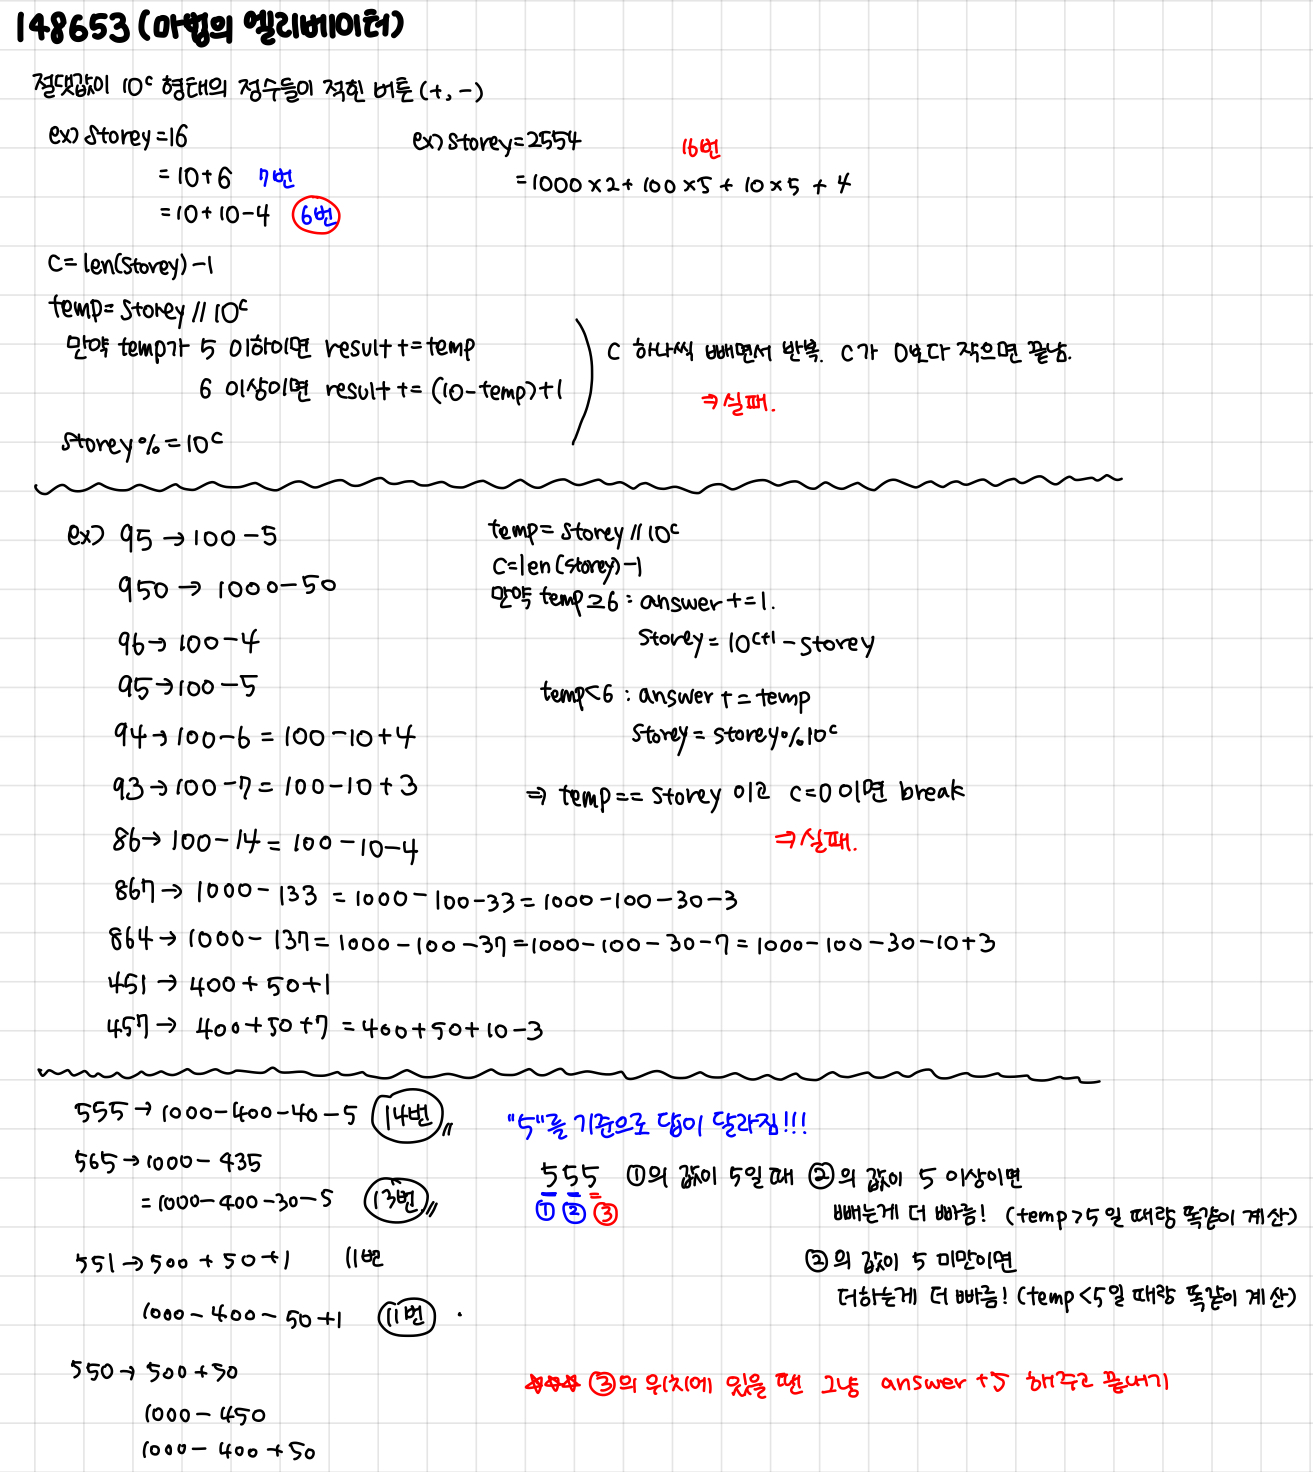 148653 (마법의 엘리베이터)
절댓값이 10ᶜ 형태의 정수들이 적힌 버튼 (+, -)
ex) storey=16
= 10+6 7번
= 10+10-4 6번
ex) storey=2554 16번
= 1000×2 + 100×5 + 10×5 + 4
c = len(storey) -1
temp = storey // 10ᶜ
만약 temp가 5 이하이면 result += temp
6 이상이면 result += (10-temp)+1
storey %= 10ᶜ
c 하나씩 빼면서 반복. c가 0보다 작으면 끝남.
⇒ 실패.
ex) 95 → 100-5
950 → 1000-50
96 → 100-4
95 → 100-5
94 → 100-6 = 100-10+4
93 → 100-7 = 100-10+3
86 → 100-14 = 100-10-4
867 → 1000-133 = 1000-100-33 = 1000-100-30-3
864 → 1000-137 = 1000-100-37 = 1000-100-30-7 = 1000-100-30-10+3
451 → 400+50+1
457 → 400+50+7 = 400+50+10-3
temp = storey // 10ᶜ
c = len(storey) -1
만약 temp ≥ 6 : answer += 1.
storey = 10ᶜ⁺¹ - storey
temp < 6 : answer += temp
storey = storey % 10ᶜ
⇒ temp == storey 이고 c=0 이면 break
⇒ 실패.
555 → 1000-400-40-5 14번
565 → 1000-435
= 1000-400-30-5 13번
551 → 500+50+1 11번
1000-400-50+1 11번
550 → 500+50
1000-450
1000-400+50
"5"를 기준으로 답이 달라짐!!!
555
① ② ③
①의 값이 5일 때 ②의 값이 5 이상이면
빼는게 더 빠름! (temp>5일 때랑 똑같이 계산)
②의 값이 5 미만이면
더하는게 더 빠름! (temp<5일 때랑 똑같이 계산)
☆☆☆ ③의 위치에 있을 땐 그냥 answer +5 해주고 끝내기